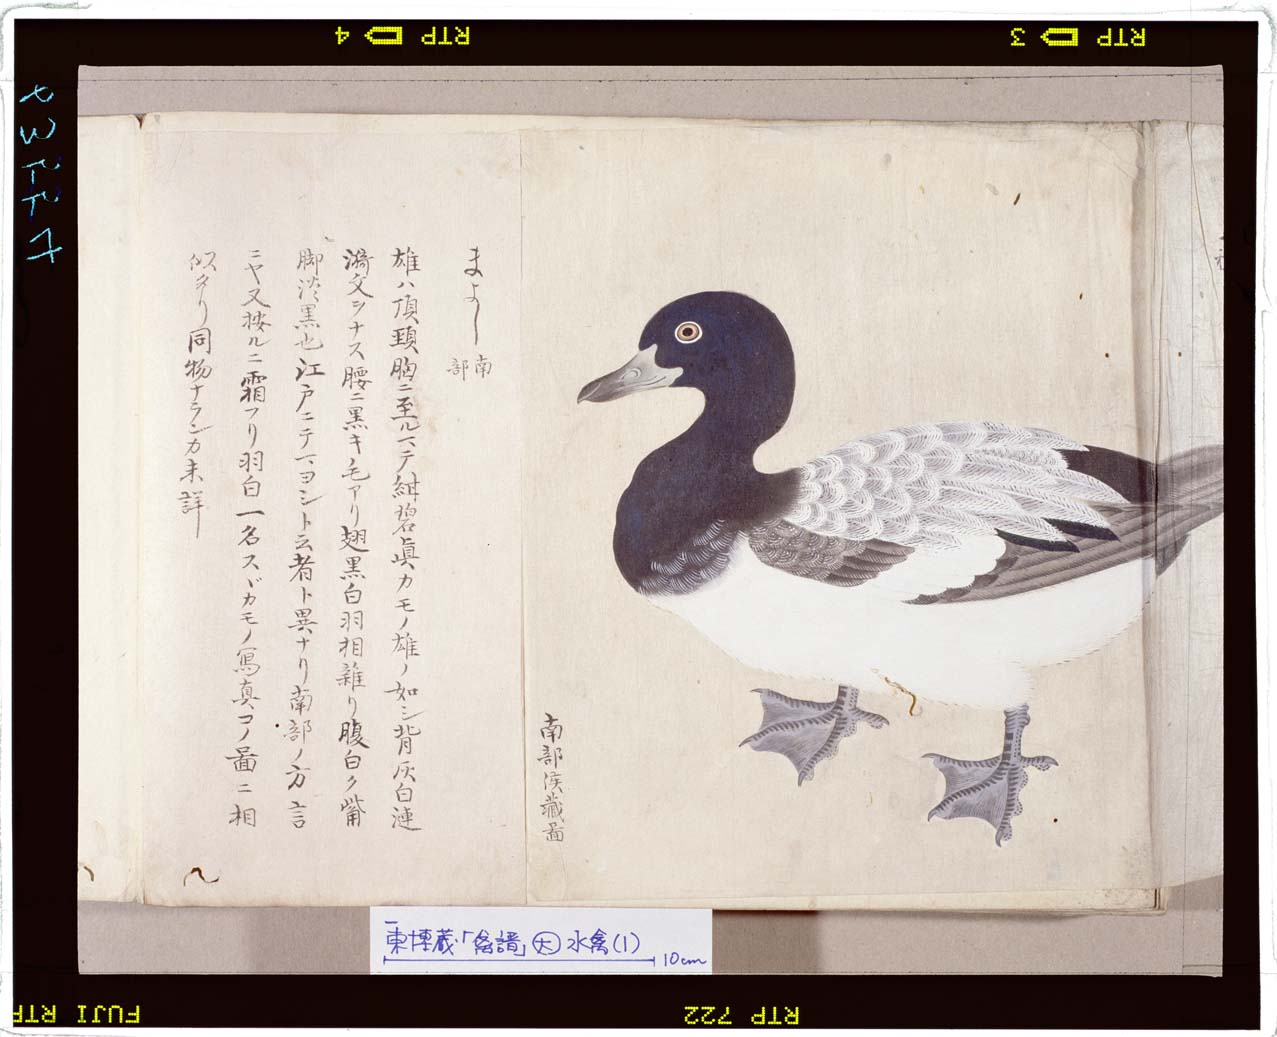 RTP 4
RTP 3
まよし 南部
雄ハ頂頸胸ニ至ルマテ紺碧眞カモノ雄ノ如シ背灰白漣
漪文ヲナス腰ニ黒キ毛アリ翅黒白羽相雜リ腹白ク觜
脚淡黒也江戸ニテマヨシト云者ト異ナリ南部ノ方言
ニヤ又按ルニ霜フリ羽白一名スヾカモノ寫真コノ啚ニ相
似タリ同物ナランカ未詳
南部侯藏啚
東博蔵「禽譜」大 水禽(1)
10cm
FUJI RTP
RTP 722